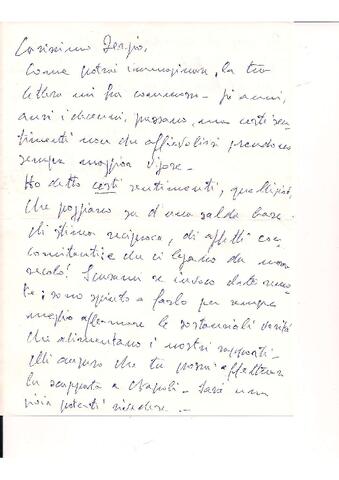 Carissimo Sergio,
Come potrai immaginare, la tua
lettera mi ha commosso. Gli anni,
anzi i decenni, passano, ma certi sen-
timenti non che affievolirsi prendono
sempre maggior vigore.
Ho detto certi sentimenti, quelli
che poggiano su d'una salda base
di stima reciproca, di affetti con-
comitanti e che ci legano da mezzo
secolo! Scusami se invoco
; sono spinto a farlo per sempre
meglio affermare le sostanziali verità
che alimentano i nostri rapporti.
Mi auguro che tu possa effettuare
la scappata a Napoli. Sarà una
gioia poterti rivedere.